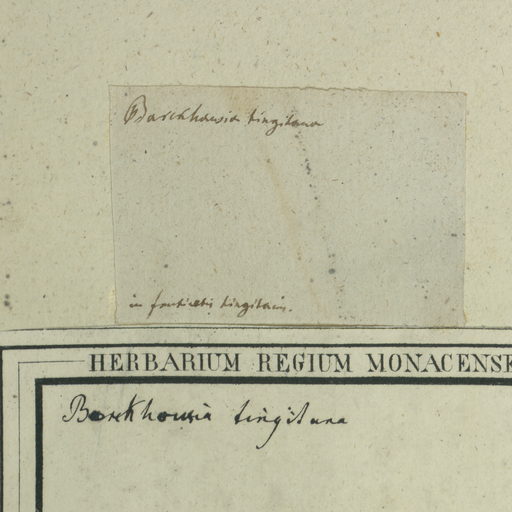 Barckhausia tingitana
in fruticetis tingitanis.
HERBARIUM REGIUM MONACENSE
Barckhausia tingitana